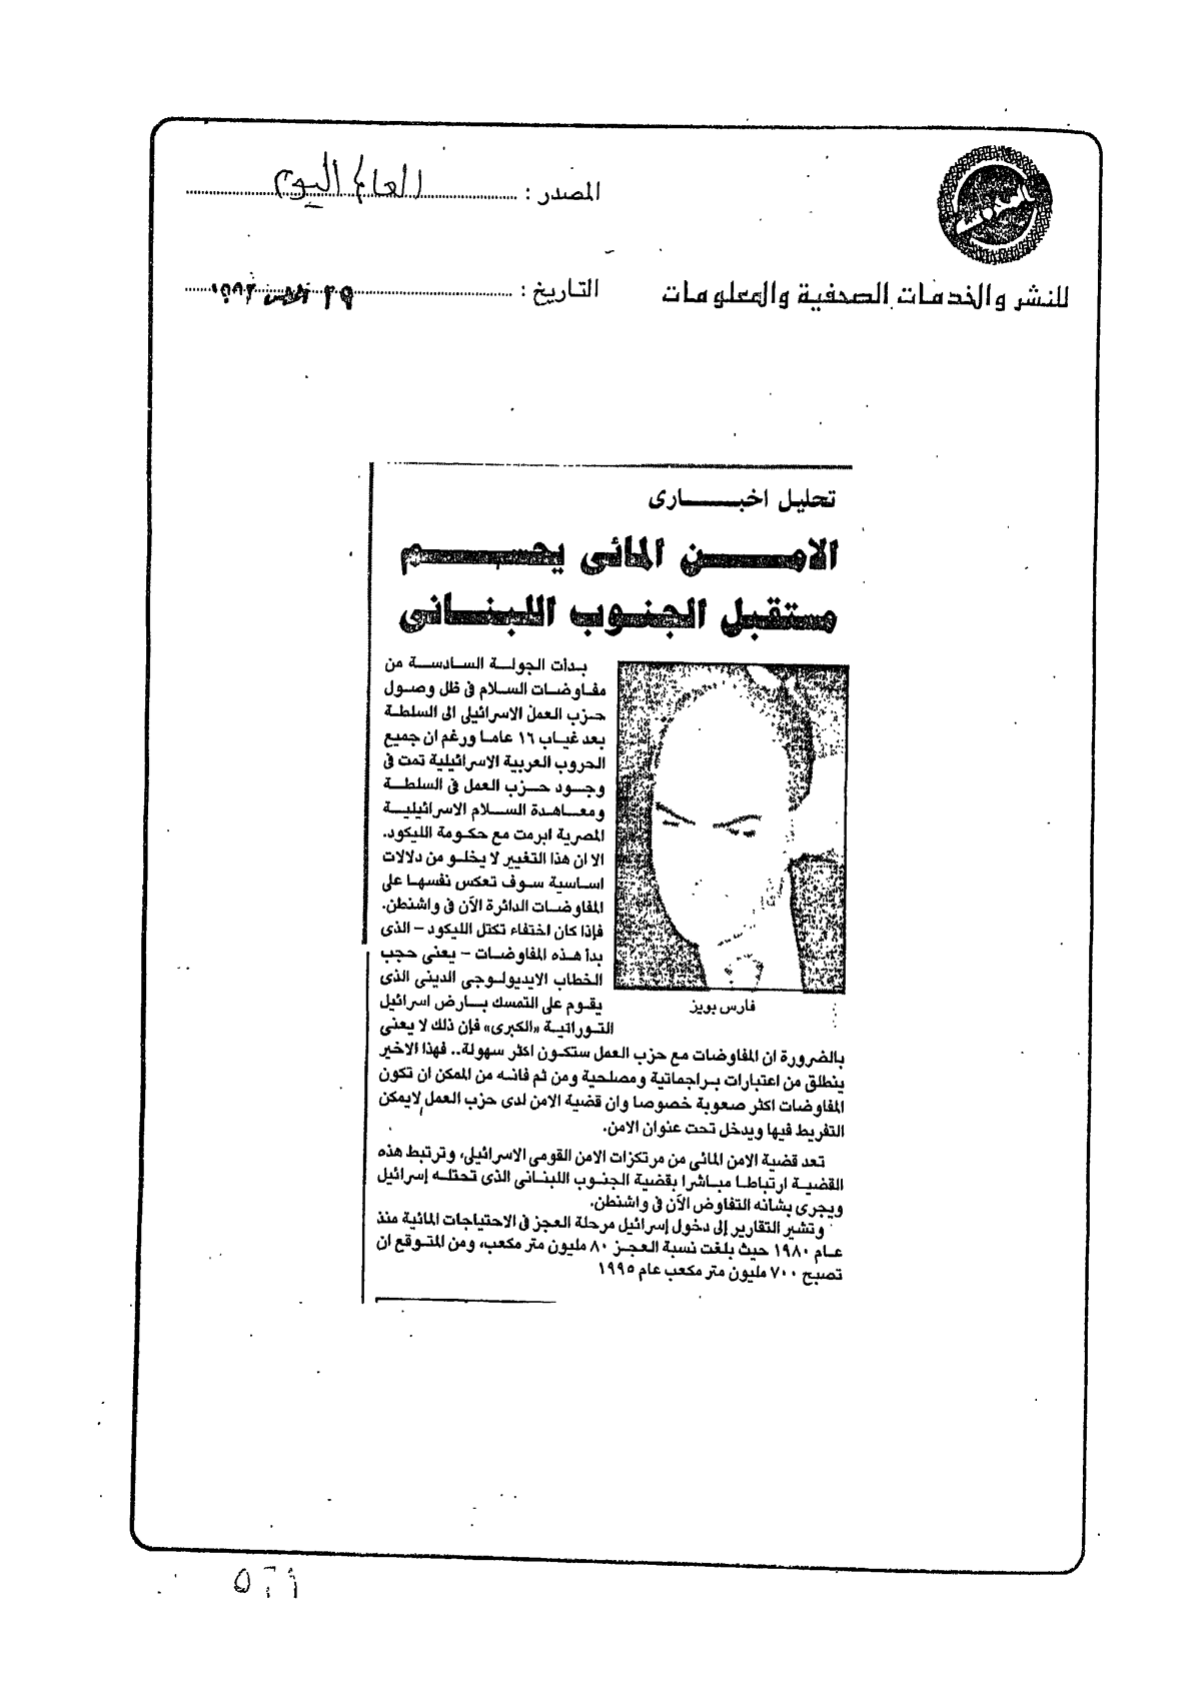 المصدر : العالم اليوم
للنشر والخدمات الصحفية والمعلومات
التاريخ : ٢٩ ١٩٩٢
تحليل اخبـــارى
الامـــن المائى يحســـم
مستقبل الجنوب اللبنـانى
بدأت الجولة السادسة من
مفاوضات السلام فى ظل وصول
حزب العمل الاسرائيلى الى السلطة
بعد غياب ١٦ عاما ورغم ان جميع
الحروب العربية الاسرائيلية تمت فى
وجود حزب العمل فى السلطة
ومعاهدة السلام الاسرائيلية
المصرية ابرمت مع حكومة الليكود.
الا ان هذا التغيير لا يخلو من دلالات
اساسية سوف تعكس نفسها على
المفاوضات الدائرة الآن فى واشنطن.
فإذا كان اختفاء تكتل الليكود – الذى
بدأ هذه المفاوضات – يعنى حجب
الخطاب الايديولوجى الدينى الذى
يقوم على التمسك بارض اسرائيل
التوراتية «الكبرى» فإن ذلك لا يعنى
فارس بويز
بالضرورة ان المفاوضات مع حزب العمل ستكون اكثر سهولة.. فهذا الاخير
ينطلق من اعتبارات براجماتية ومصلحية ومن ثم فانه من الممكن ان تكون
المفاوضات اكثر صعوبة خصوصا وان قضية الامن لدى حزب العمل لايمكن
التفريط فيها ويدخل تحت عنوان الامن.
تعد قضية الامن المائى من مرتكزات الامن القومى الاسرائيلى، وترتبط هذه
القضية ارتباطا مباشرا بقضية الجنوب اللبنانى الذى تحتله إسرائيل
ويجرى بشانه التفاوض الآن فى واشنطن.
وتشير التقارير إلى دخول إسرائيل مرحلة العجز فى الاحتياجات المائية منذ
عام ١٩٨٠ حيث بلغت نسبة العجز ٨٠ مليون متر مكعب، ومن المتوقع ان
تصبح ٧٠٠ مليون متر مكعب عام ١٩٩٥